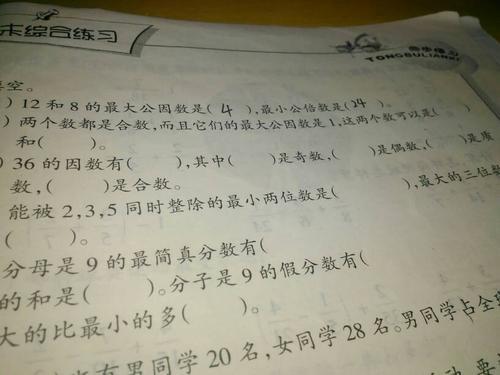 末综合练习
同步练习
TONGBULIANXI
空。
) 12 和 8 的最大公因数是( 4 ),最小公倍数是( 24 )。
) 两个数都是合数,而且它们的最大公因数是 1,这两个数可以是( )
和( )。
) 36 的因数有( ),其中( )是奇数,( )是偶数,( )是质
数,( )是合数。
能被 2,3,5 同时整除的最小两位数是( ),最大的三位数
( )。
分母是 9 的最简真分数有(
的和是( )。分子是 9 的假分数有(
大的比最小的多( )。
有男同学 20 名,女同学 28 名。男同学占全